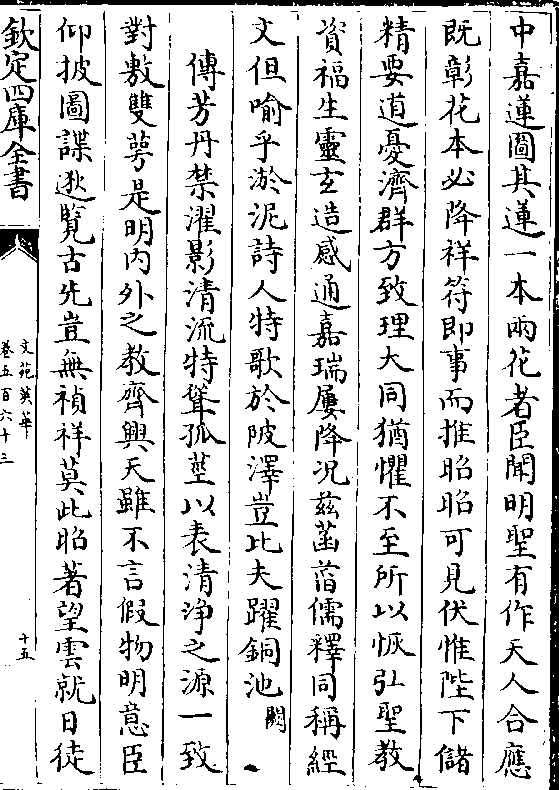 中嘉蓮圖其蓮一本兩花者臣聞明聖有作天人合應
既彰花本必降祥符即事而推昭昭可見伏惟陛下儲
精要道憂濟群方致理大同猶懼不至所以恢弘聖教
資福生靈玄造感通嘉瑞屢降況兹菡萏儒釋同稱經
文但喻乎淤泥詩人特歌於陂澤豈比夫躍銅池闕
傳芳丹禁濯影清流特聳孤莖以表清淨之源一致
對敷雙萼是明内外之教齊興天雖不言假物明意臣
仰披圖諜逖覽古先豈無禎祥莫此昭著望雲就日徒
欽定四庫全書
文苑英華
卷五百六十三
十五